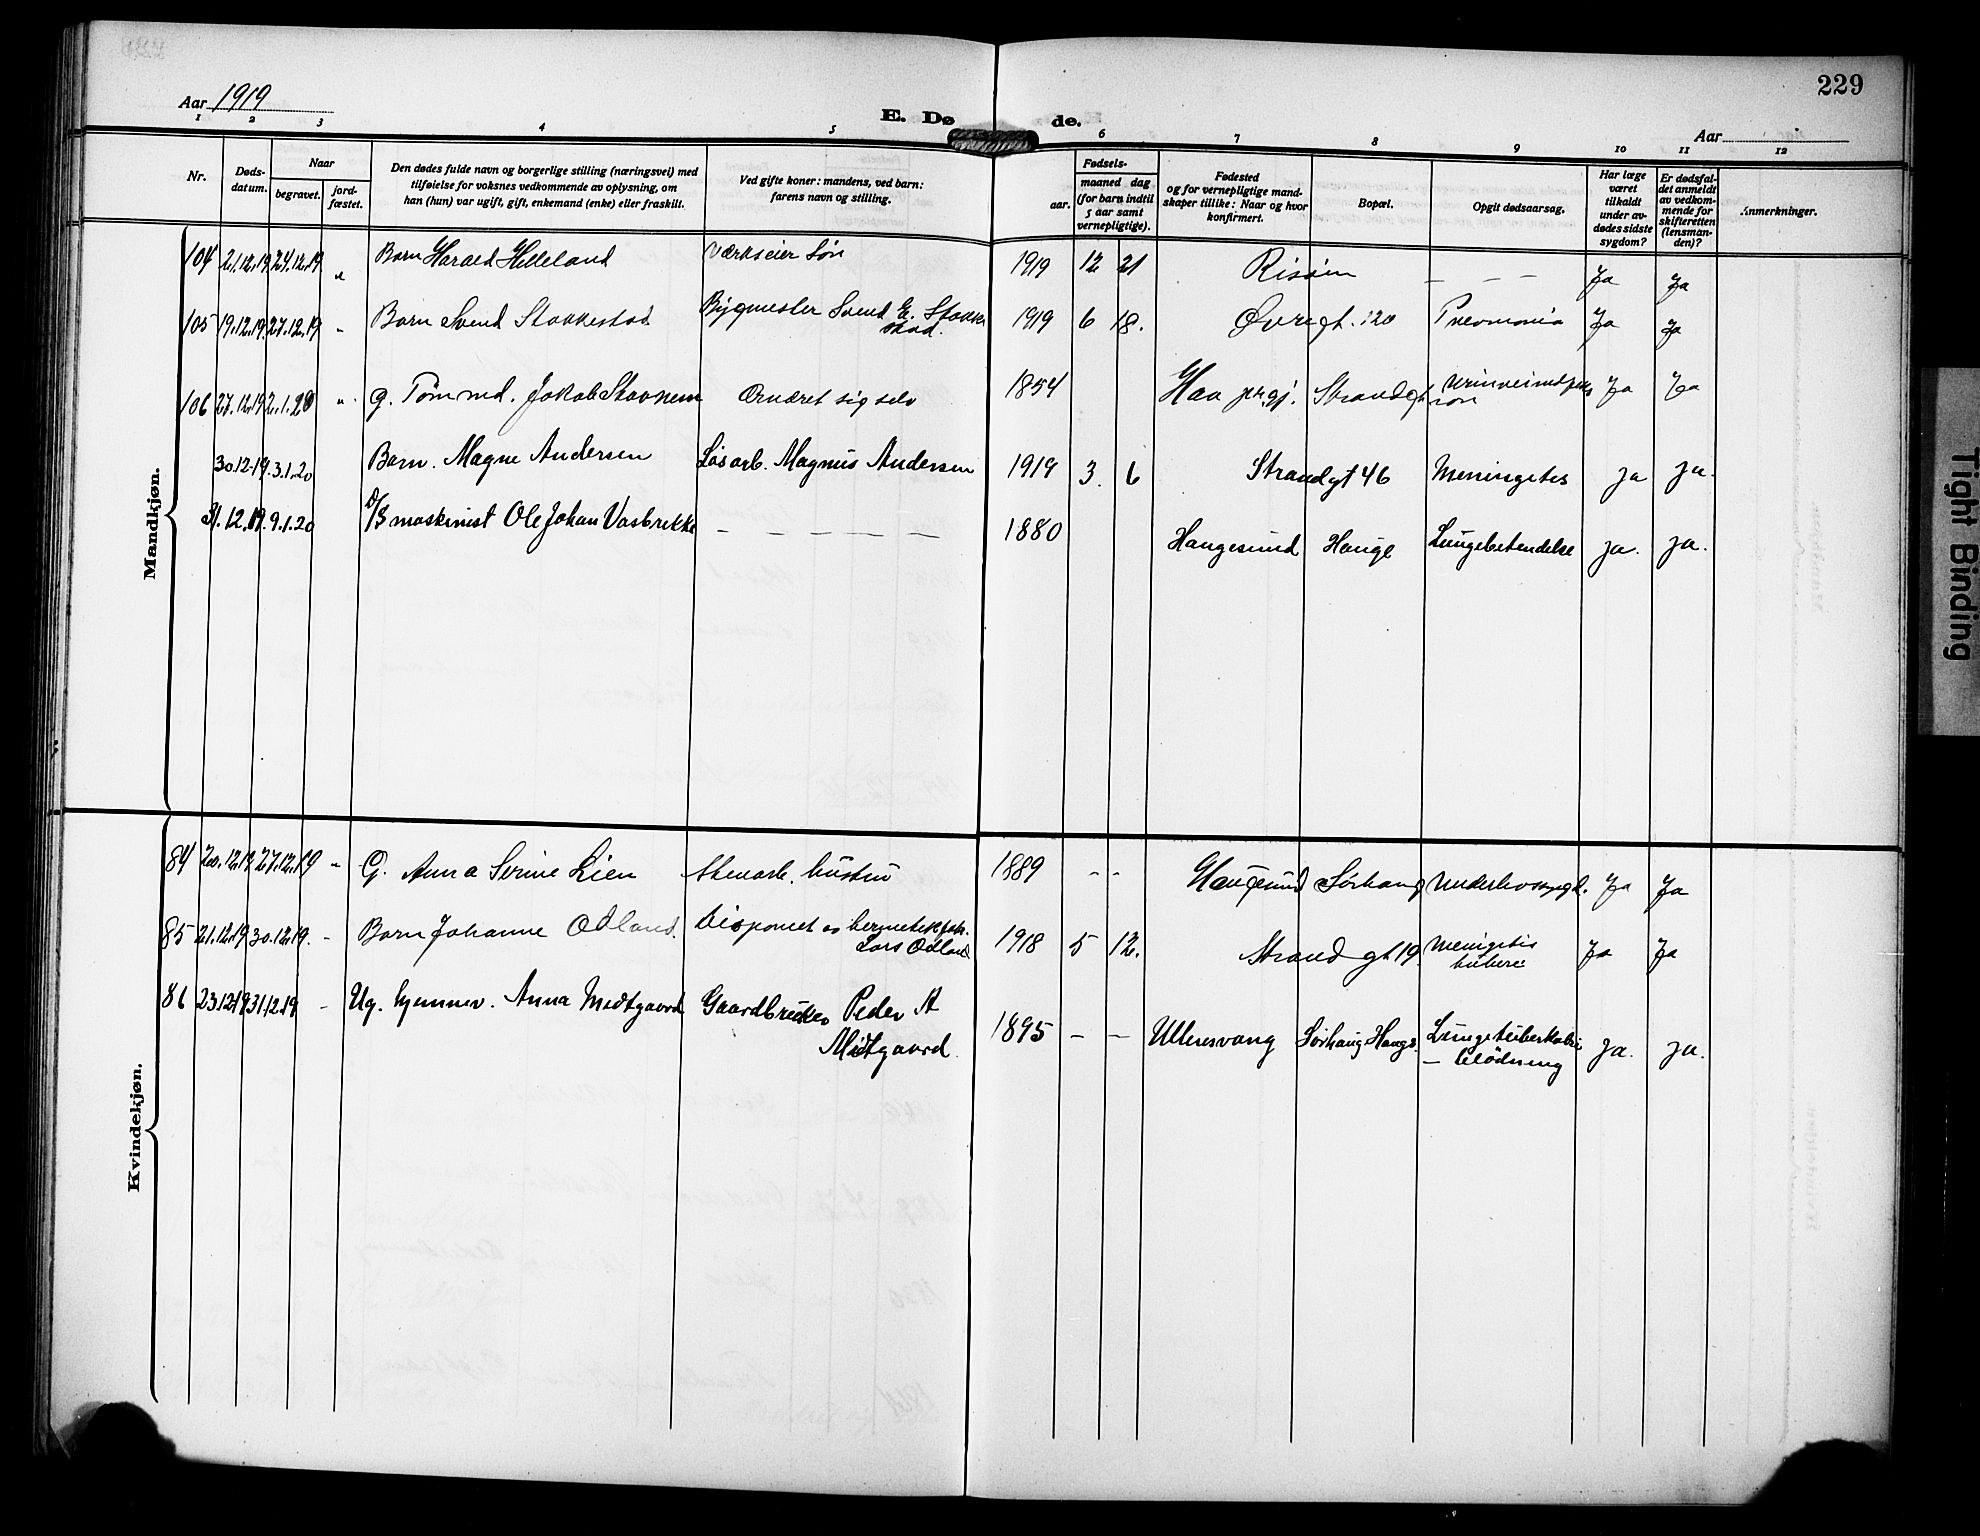 229
Aar 1919
E. Dø de.
Aar
1 2 3 4 5 6 7 8 9 10 11 12
Nr.
Døds-
datum.
Naar
begravet.
jord-
fæstet.
Den dødes fulde navn og borgerlige stilling (næringsvei) med
tilføielse for voksnes vedkommende av oplysning, om
han (hun) var ugift, gift, enkemand (enke) eller fraskilt.
Ved gifte koner: mandens, ved barn:
farens navn og stilling.
Fødsels-
aar.
maaned dag
(for barn indtil
5 aar samt
vernepligtige).
Fødested
og for vernepligtige mand-
skaper tillike: Naar og hvor
konfirmert.
Bopæl.
Opgit dødsaarsag.
Har læge
været
tilkaldt
under av-
dødes sidste
sygdom?
Er dødsfal-
det anmeldt
av vedkom-
mende for
skifteretten
(lensman-
den)?
Anmerkninger.
Mandkjøn.
104 21.12.19 24.12.19 " Barn Harald Helleland Værkseier Søn 1919 12 21 Risøen — — — Ja Ja
105 19.12.19. 27.12.19 " Barn Svend Stakkestad Bygmester Svend E. Stakke
stad. 1919 6 18. Øvregt. 120 Pneumonia Ja Ja
106 27.12.19 2.1.20 " g. Tømmd. Jakob Stavnem Ernæret sig selv 1854 Haa prgj. Strandgt Ja Ja
30.12.19. 3.1.20 Barn. Magne Andersen Løsarb. Magnus Andersen 1919 3. 6 Strandgt 46 Meningetes Ja Ja.
31.12.19. 9.1.20 D/S maskinist Ole Johan Vasbrekke — — — — — 1880 Haugesund Hauge Lungebetendelse Ja. Ja.
Kvindekjøn.
84 20.12.19 27.12.19 " G. Anna Serine Lien Stenarb. hustru 1889 - - Haugesund Sørhaug Underlivssygd. Ja Ja
85 21.12.19 30.12.19. - Barn Johanne Odland. Disponent os hermetikfabr.
Lars Odland 1918 5 12. Strandgt 19. Menigetis
tuberc Ja Ja
86 23.12.19 31.12.19 - Ug. hjemmev. Anna Midtgaard Gaardbruker Peder A
Midtgaard. 1895 — — Ullensvang Sørhaug Haugs. Lungetuberkolse
— blödning Ja. Ja.
Tight Binding